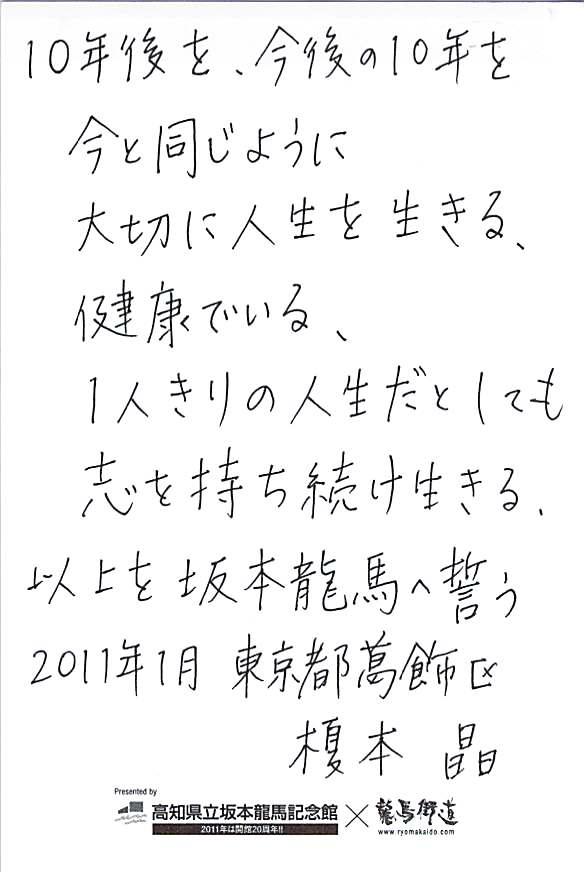 10年後を、今後の10年を
今と同じように
大切に人生を生きる、
健康でいる、
1人きりの人生だとしても
志を持ち続け生きる、
以上を坂本龍馬へ誓う
2011年1月 東京都葛飾区
榎本 晶
Presented by
高知県立坂本龍馬記念館×龍馬街道
2011年は開館20周年!!
www.ryomakaido.com